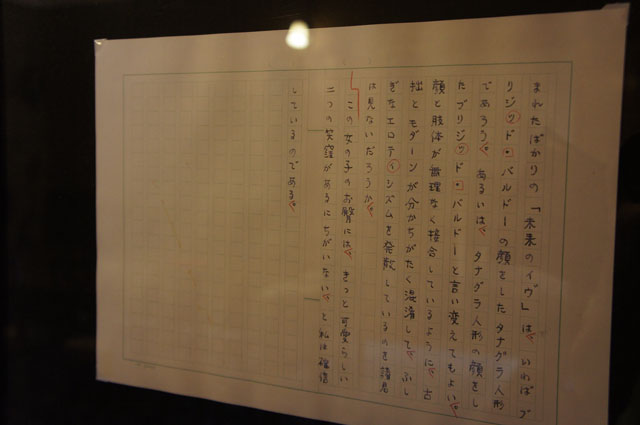 まれたばかりの「未来のイヴ」は、いわばブ
リジッド・バルドーの顔をしたタナグラ人形
であろう。あるいは、タナグラ人形の顔をし
たブリジッド・バルドーと言い変えてもよい。
顔と肢体が無理なく接合しているように、古
拙とモダーンが分かちがたく混淆して、ふし
ぎなエロティシズムを発散しているのを諸君
は見ないだろうか。
この女の子のお臀には、きっと可愛らしい
二つの笑窪があるにちがいない、と私は確信
しているのである。